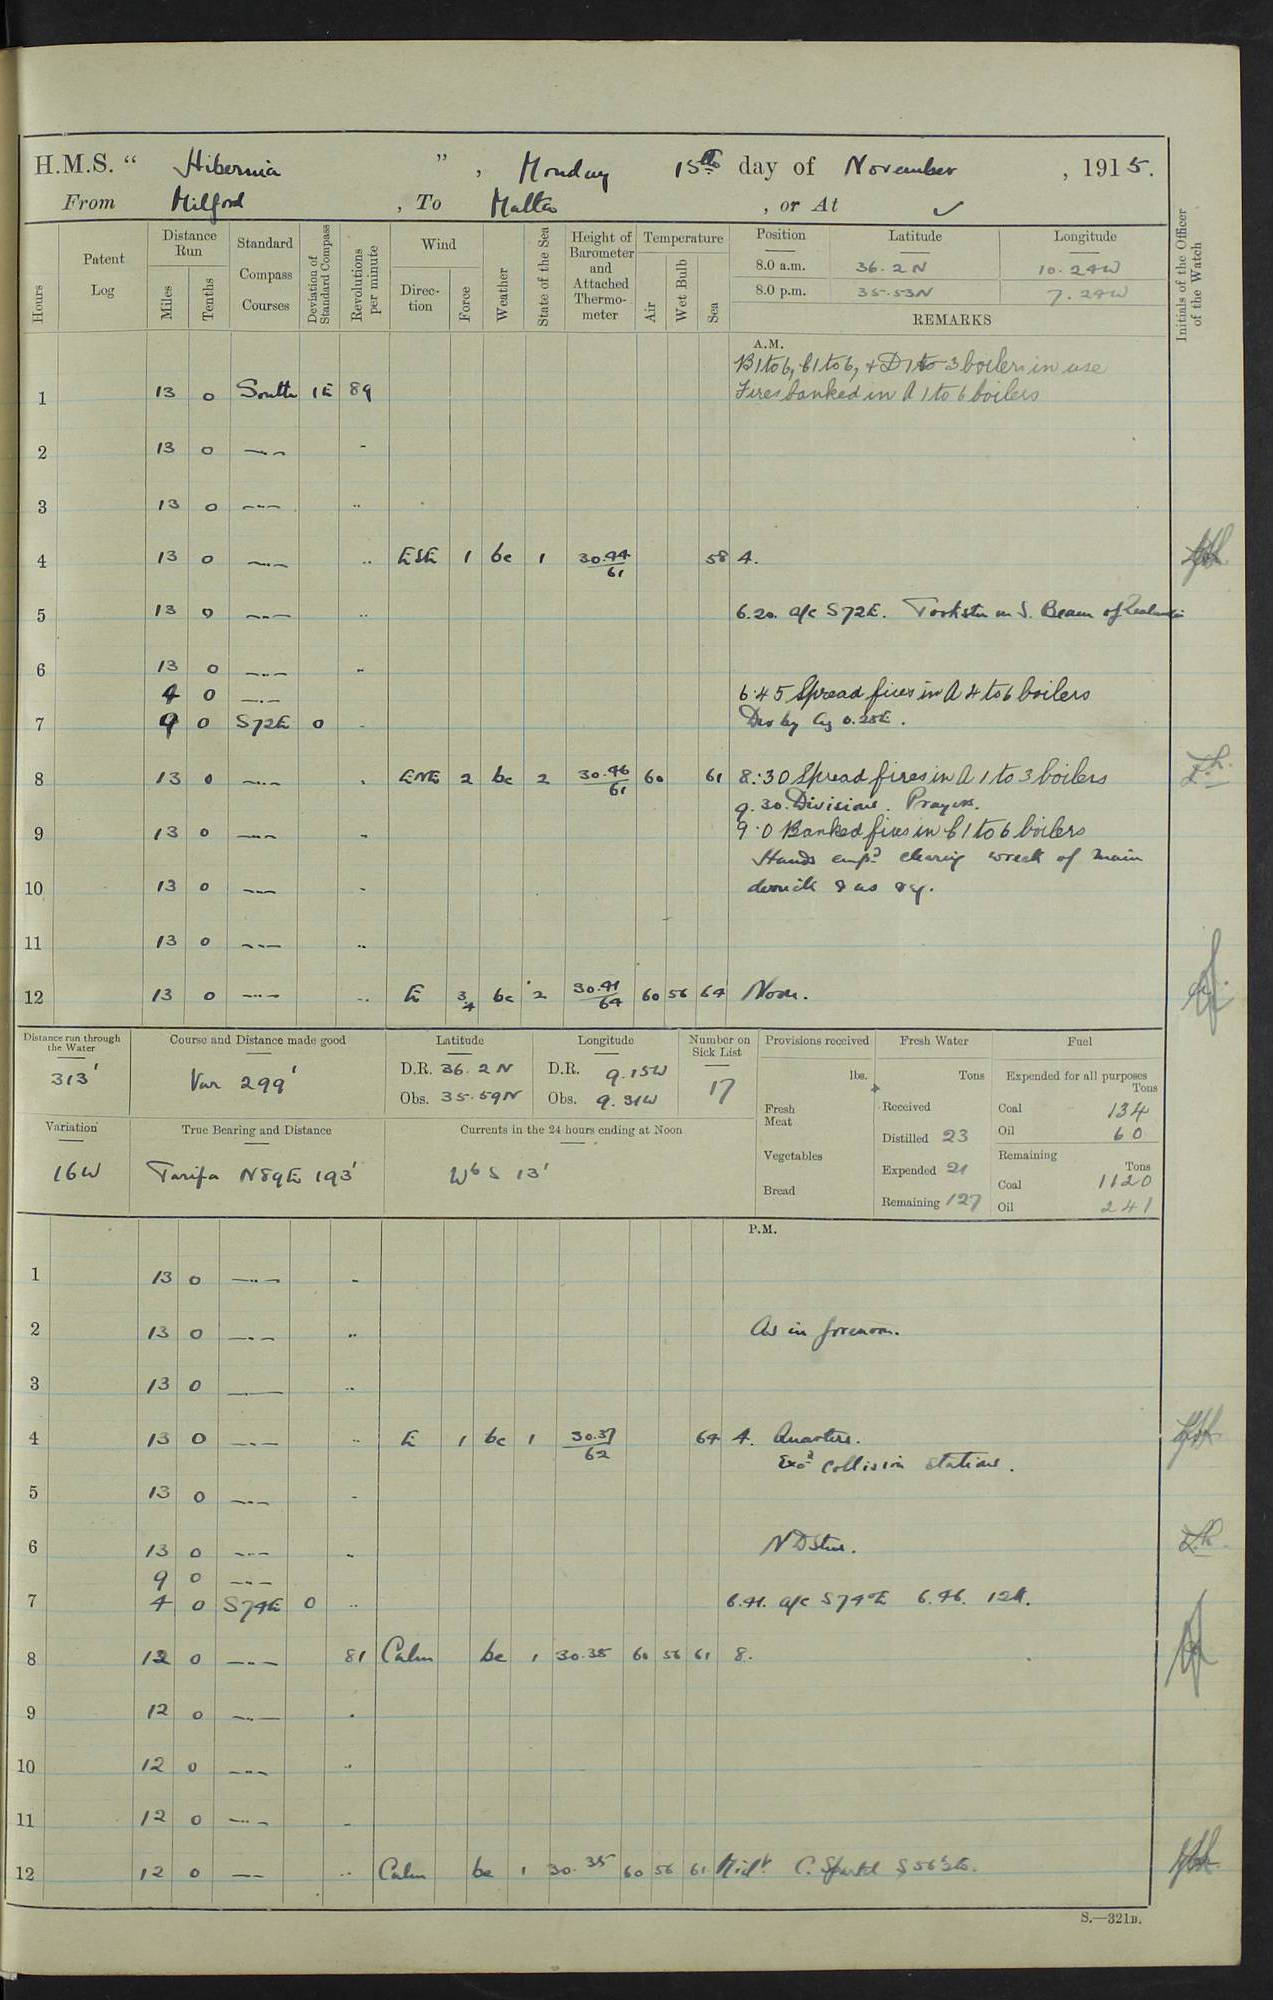 H.M.S. “ Hibernia ”, Monday 15th day of November, 1915.
From Milford, To Malta, or At ✓
Hours Patent Log Distance Run Miles Tenths Standard Compass Courses Deviation of Standard Compass Revolutions per minute Wind Direction Force Weather State of the Sea Height of Barometer and Attached Thermometer Temperature Air Wet Bulb Sea Position Latitude Longitude Initials of the Officer of the Watch
8.0 a.m. 36.2N 10.24W
8.0 p.m. 35.53N 7.24W
REMARKS
A.M.
B1 to 6, C1 to 6, + D1 to 3 boilers in use
1 13 0 South 1E 89 Fires banked in A 1 to 6 boilers
2 13 0 —..— "
3 13 0 —..— "
4 13 0 —..— " ESE 1 bc 1 30.44/61 58 4.
5 13 0 —..— " 6.20. a/c S72E. Took stn on S. Beam of Zealandia
6 13 0 —..— "
4 0 —..— 6.45 Spread fires in A 4 to 6 boilers
7 9 0 S72E 0 " Dev by Az 0.25E.
8 13 0 —..— " ENE 2 bc 2 30.46/61 60 61 8:30 Spread fires in A 1 to 3 boilers
9.30. Divisions. Prayers.
9 13 0 —..— " 9.0 Banked fires in C1 to 6 boilers
Hands empd clearing wreck of main
10 13 0 —..— " derrick & as req.
11 13 0 —..— "
12 13 0 —..— " E 3/4 bc 2 30.41/64 60 56 64 Noon.
Distance run through the Water Course and Distance made good Latitude Longitude Number on Sick List Provisions received Fresh Water Fuel
313' Var 299' D.R. 36.2N D.R. 9.15W 17 lbs. Tons Expended for all purposes Tons
Obs. 35.59N Obs. 9.31W Fresh Meat Received Coal 134
Variation True Bearing and Distance Currents in the 24 hours ending at Noon Distilled 23 Oil 60
16W Tarifa N89E 193' WbS 13' Vegetables Expended 21 Remaining Tons
Coal 1120
Bread Remaining 127 Oil 241
P.M.
1 13 0 —..— "
2 13 0 —..— " As in forenoon.
3 13 0 —..— "
4 13 0 —..— " E 1 bc 1 30.37/62 64 4. Quarters.
Exd Collision stations.
5 13 0 —..— "
6 13 0 —..— " ND stns.
9 0 —..—
7 4 0 S74E 0 " 6.41. a/c S74°E 6.46. 12K.
8 12 0 —..— 81 Calm bc 1 30.35 60 56 61 8.
9 12 0 —..— "
10 12 0 —..— "
11 12 0 —..— "
12 12 0 —..— " Calm bc 1 30.35 60 56 61 Midt C. Spartel S56°E
S.—321B.